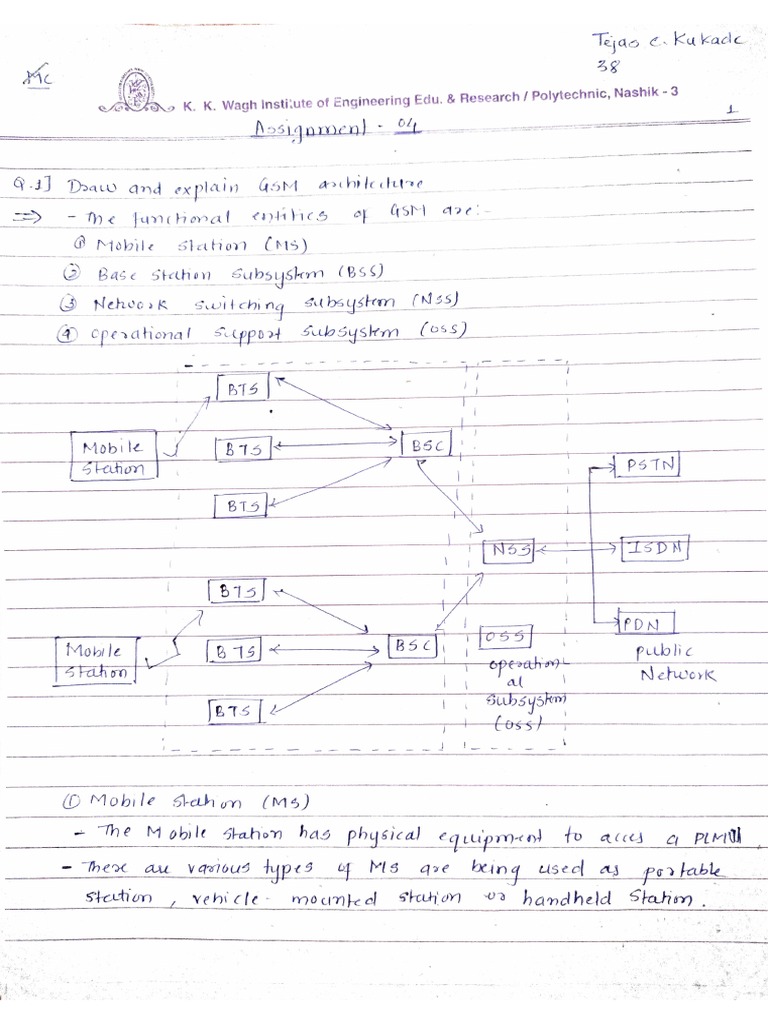 Tejas C. Kukade
38
MC
K. K. Wagh Institute of Engineering Edu. & Research / Polytechnic, Nashik - 3
1
Assignment - 04
Q.1] Draw and explain GSM architecture
=> - The functional entities of GSM are:-
① Mobile Station (MS)
② Base Station Subsystem (BSS)
③ Network Switching Subsystem (NSS)
④ Operational Support Subsystem (OSS)
BTS
Mobile
Station
BTS
BSC
PSTN
BTS
NSS
ISDN
BTS
Mobile
Station
BTS
BSC
OSS
PDN
Public
Network
operation-
al
subsystem
(OSS)
BTS
① Mobile Station (MS)
- The Mobile Station has physical equipment to acces a
- There are various types of MS are being used as portable
station, vehicle - mounted station or handheld station.